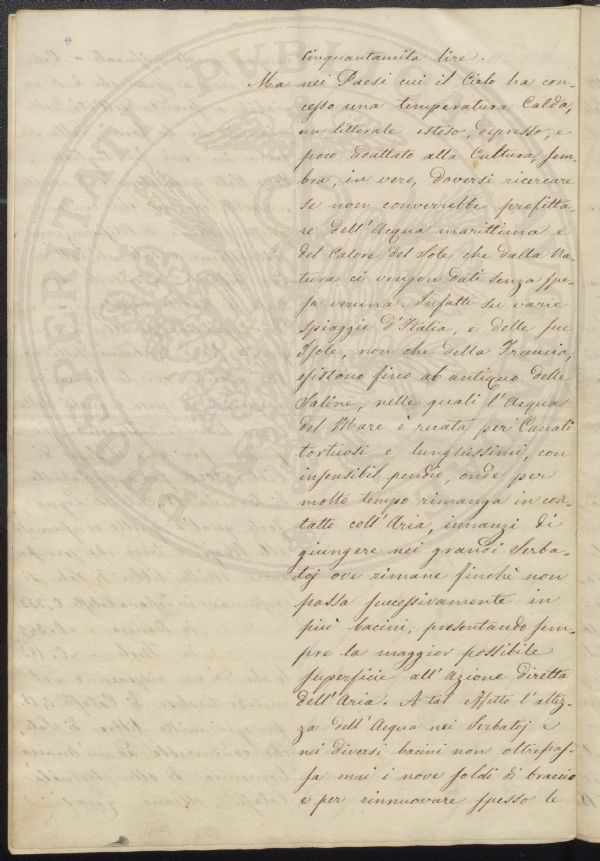 Cinquantamila lire.
Ma nei Paesi cui il Cielo ha con-
cesso una temperatura Calda,
un littorale esteso, depresso, e
poco adattato alla Cultura, sem-
bra, in vero, doversi ricercare
se non converrebbe profitta-
re dell'Acqua marittima e
del Calore del Sole che dalla Na-
tura ci vengon dati senza spe-
sa veruna. Infatti su varie
spiaggie d'Italia, e delle sue
Isole, non che della Francia,
esistono fino ab antiquo delle
Saline, nelle quali l'Acqua
del Mare è recata per Canali
tortuosi e lunghissimi, con
insensibil pendio, onde per
molto tempo rimanga in con-
tatto coll'Aria, innanzi di
giungere nei grandi Serba-
toj ove rimane finchè non
passa successivamente in
più bacini, presentando sem-
pre la maggior possibile
superficie all'azione diretta
dell'Aria. A tal effetto l'altez-
za dell'Acqua nei Serbatoj e
nei diversi bacini non oltrepas-
sa mai i nove soldi di braccio
e per rinnuovare spesso le
PROSPERITATI PUBLICAE